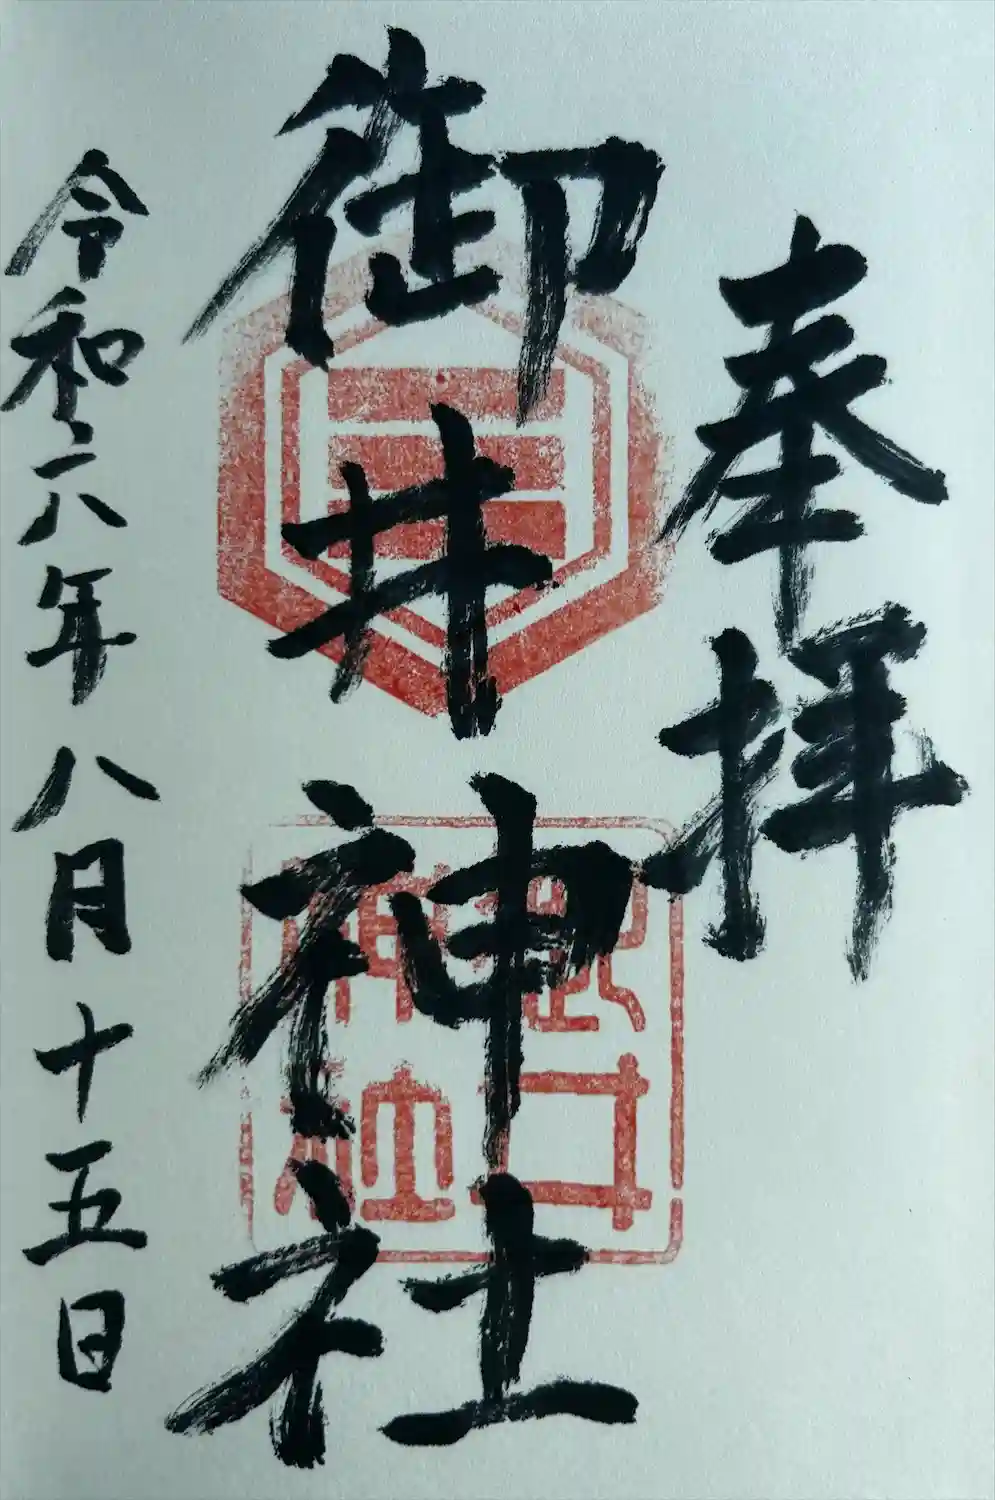 奉拝
御井神社
令和六年八月十五日
御井神社